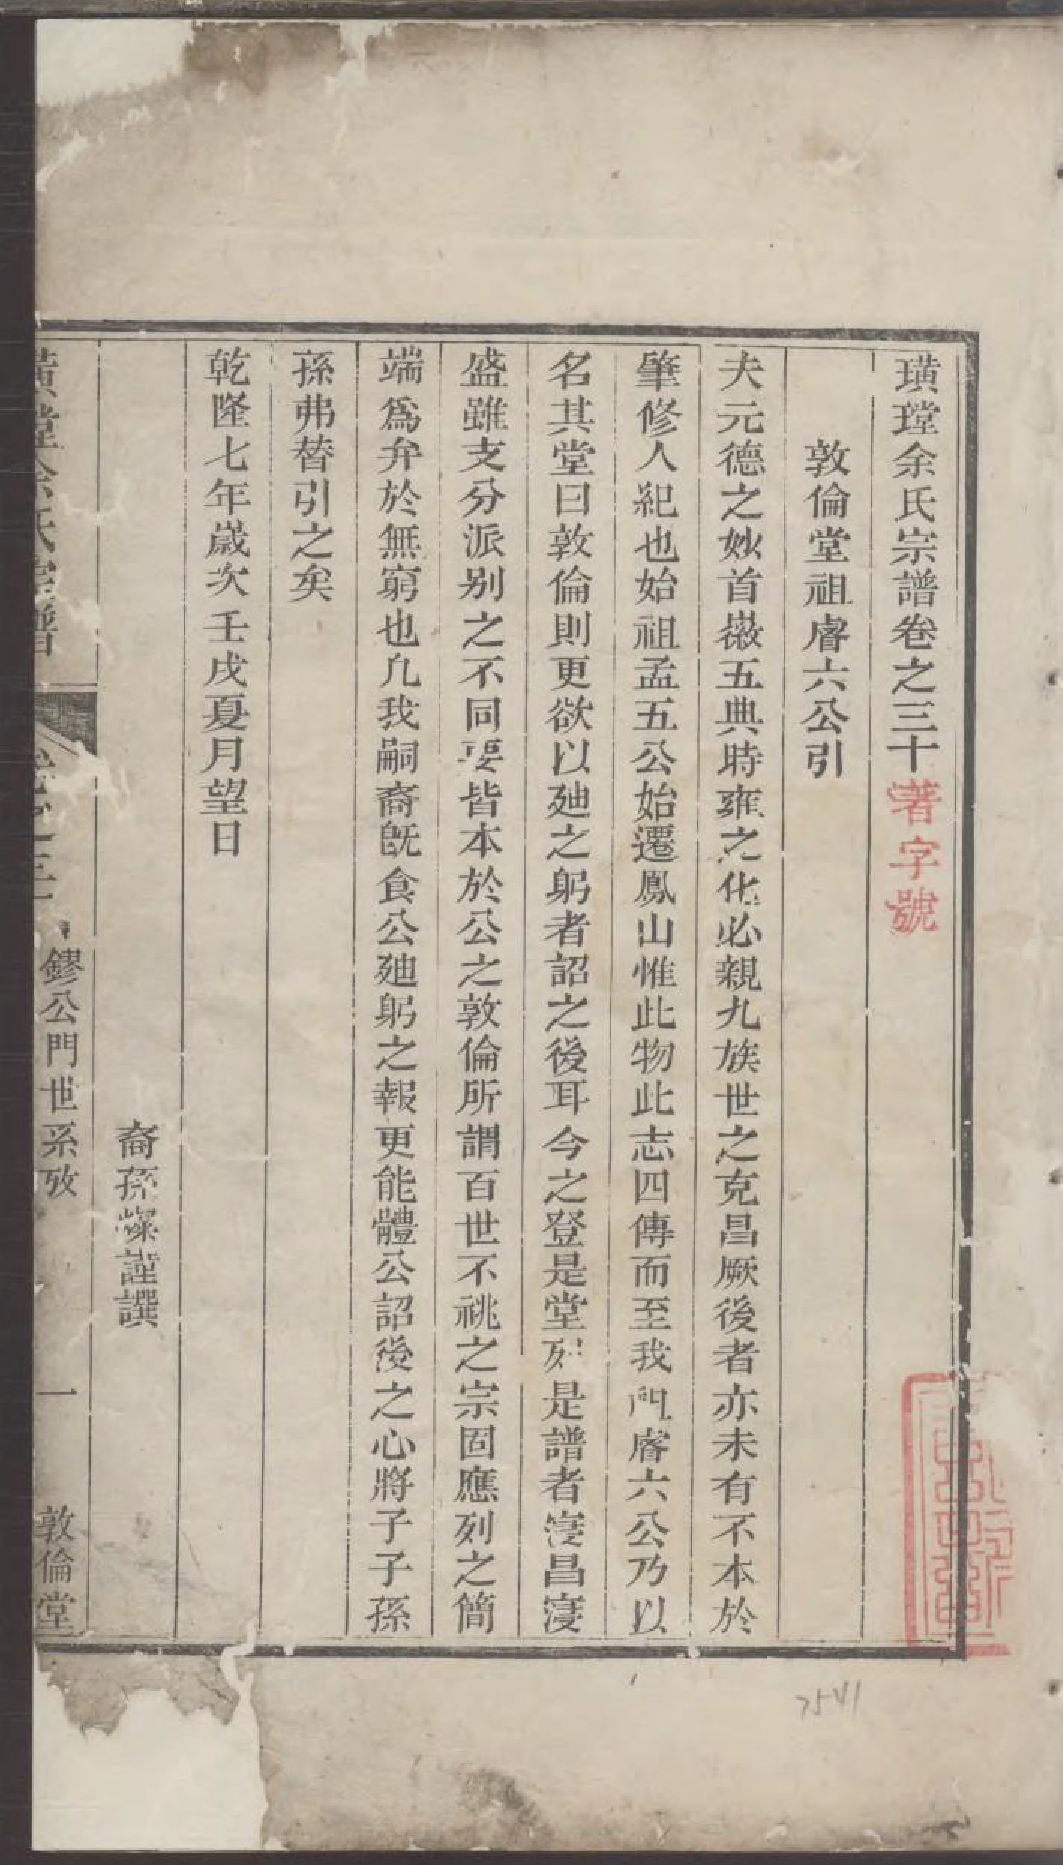 璜瑝余氏宗譜卷之三十著字號
敦倫堂祖睿六公引
夫元德之妙首嶶五典時雍之化必親九族世之克昌厥後者亦未有不本於
肇修人紀也始祖孟五公始遷鳳山惟此物此志四傳而至我門睿六公乃以
名其堂曰敦倫則更欲以廸之躬者詔之後耳今之登是堂列是譜者寖昌寖
盛雖支分派别之不同要皆本於公之敦倫所謂百世不祧之宗固應列之簡
端爲弁於無窮也凡我嗣裔旣食公廸躬之報更能體公詔後之心將子子孫
孫弗替引之矣
乾隆七年歲次壬戌夏月望日
裔孫燦謹譔
鏐公門世系攷 一 敦倫堂
7541